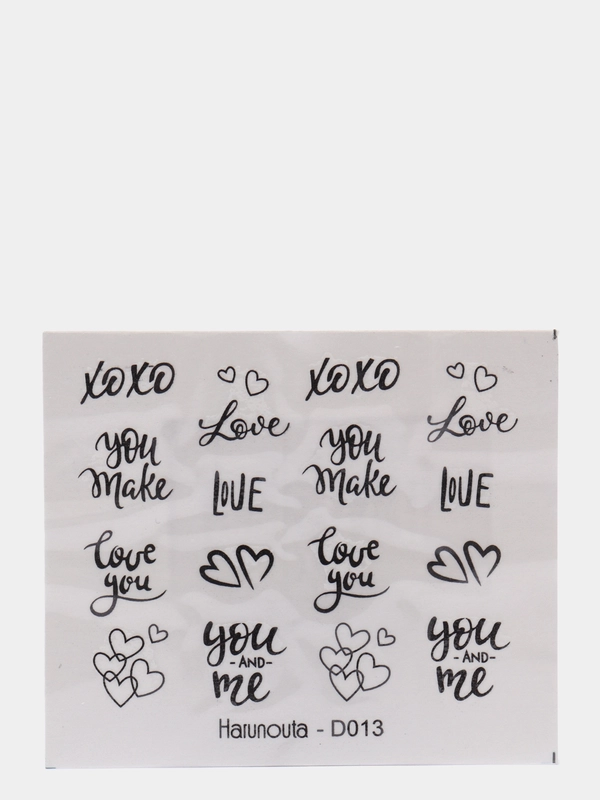 XOXO
Love
you
Make
LOVE
love
you
you
-AND-
me
XOXO
Love
you
Make
LOVE
love
you
you
-AND-
me
Harunouta - D013